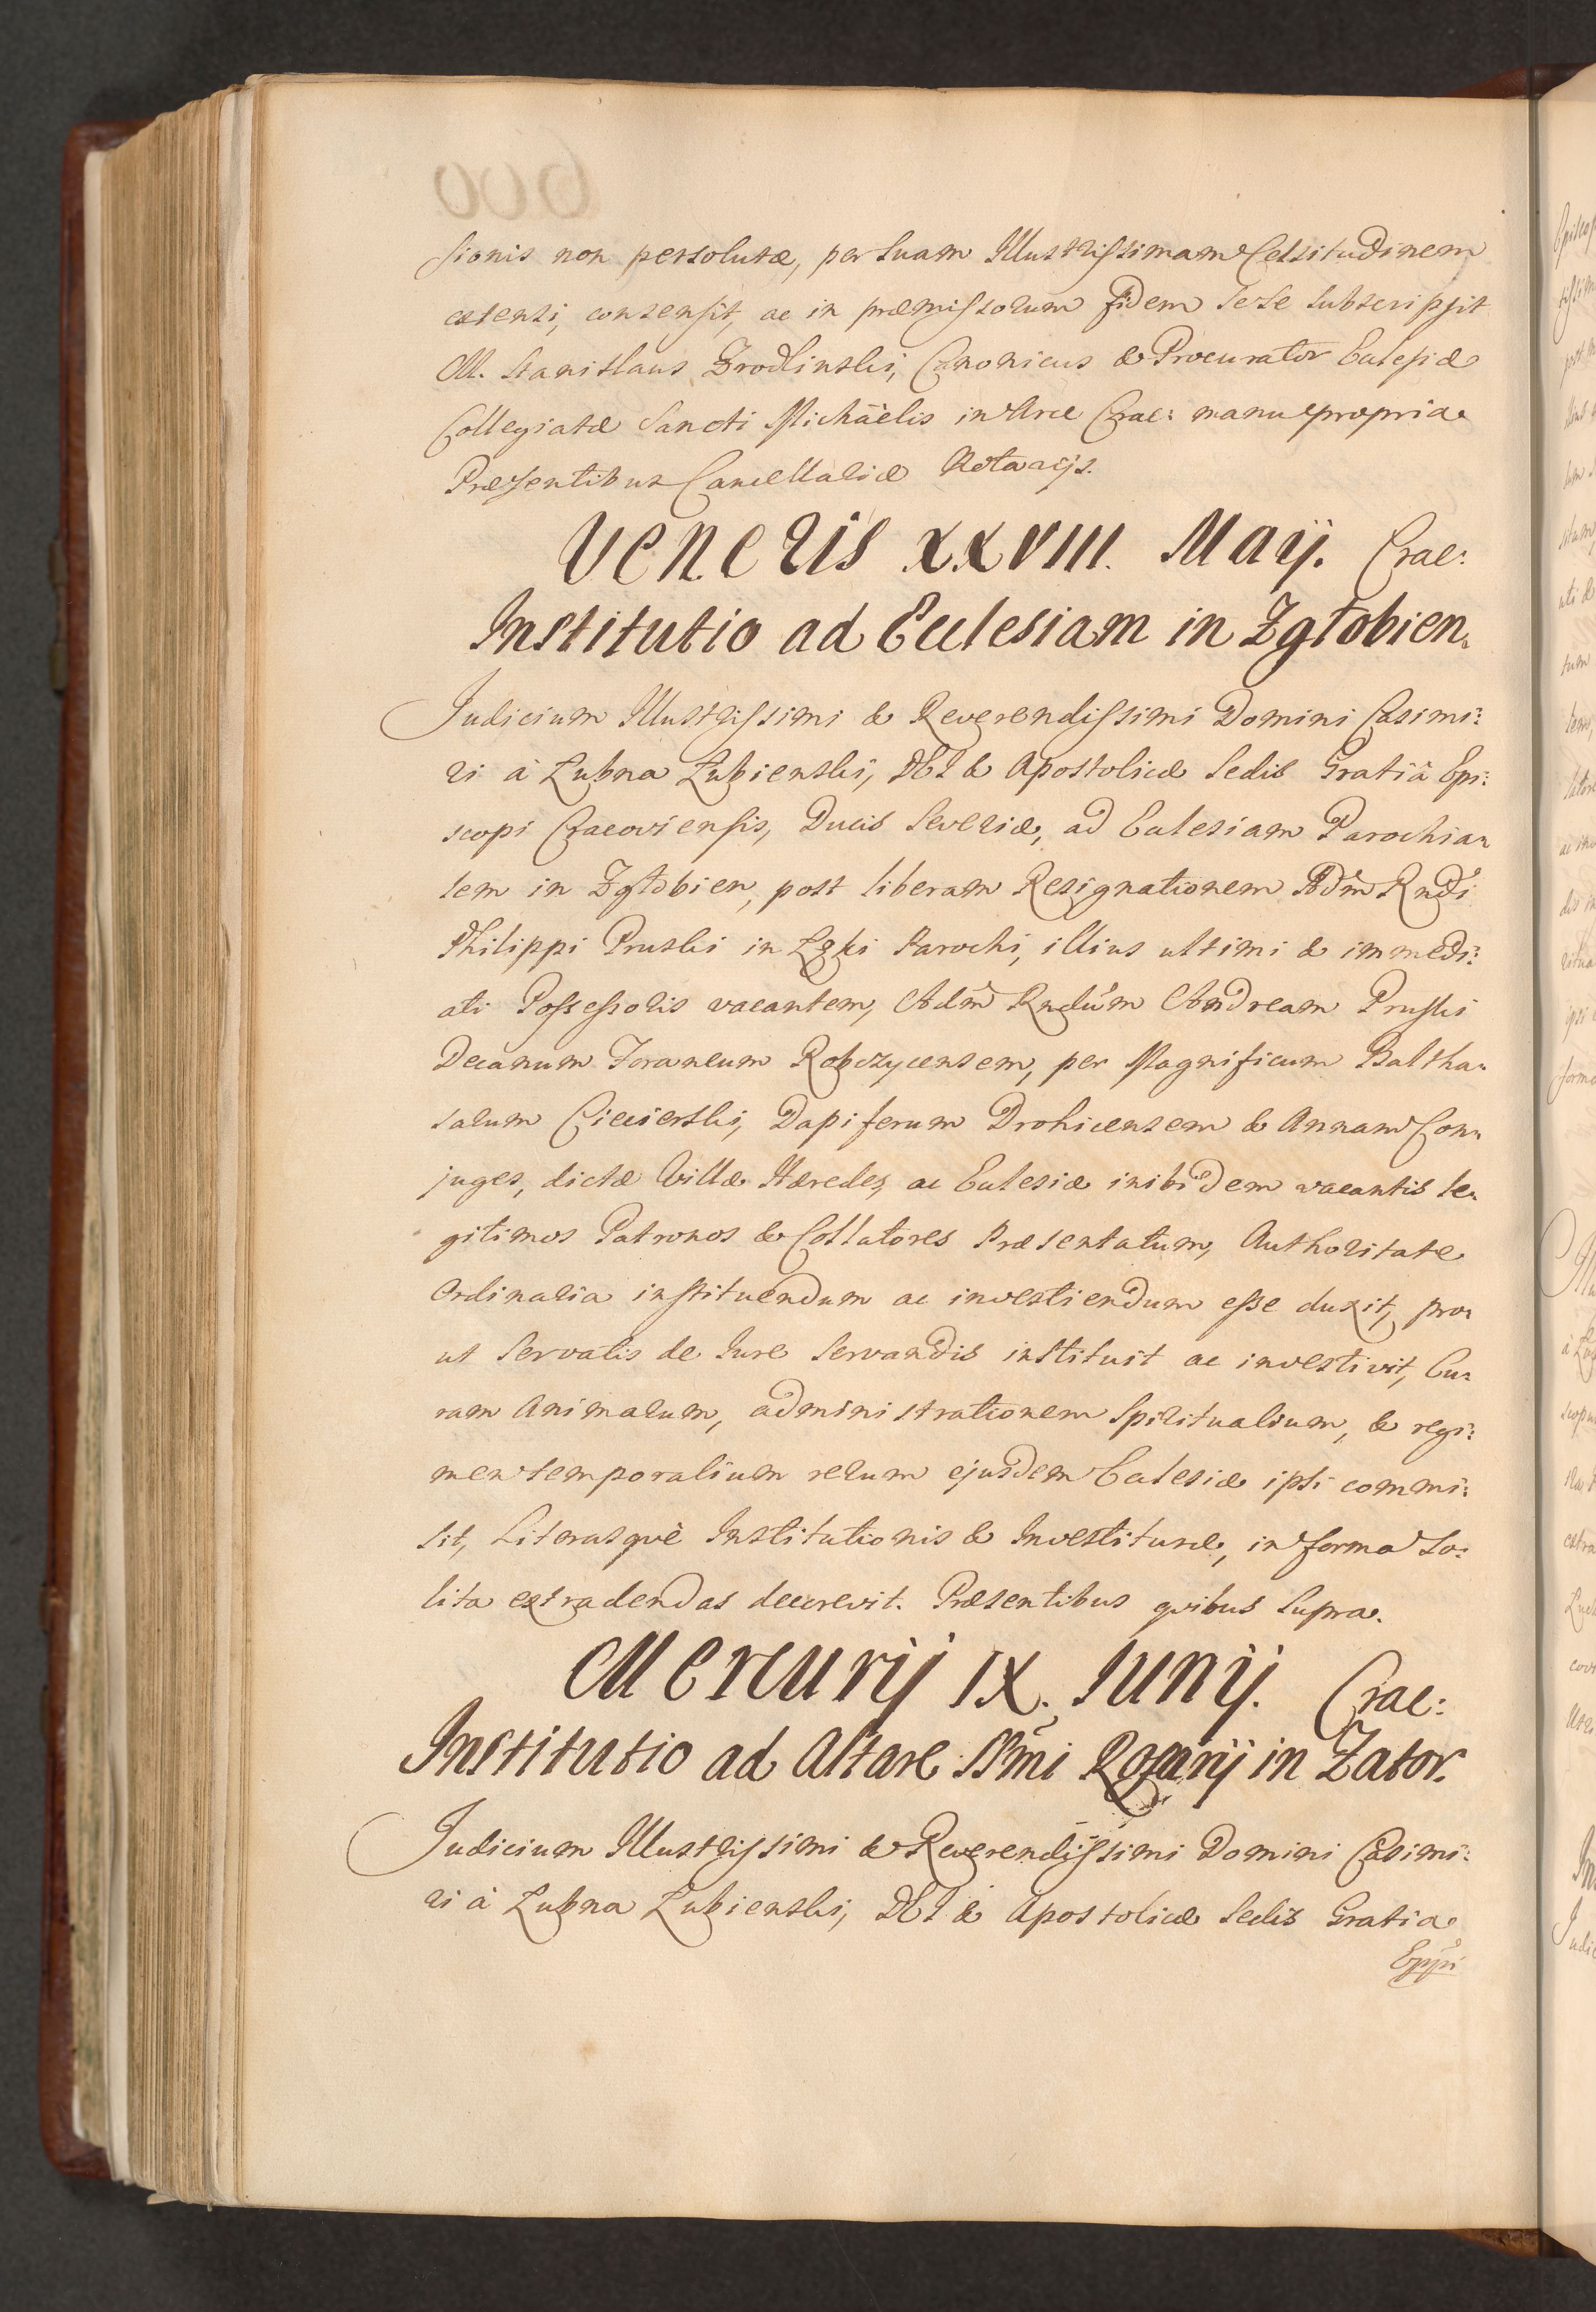 sionis non persolutæ, per Suam Illustrissimam Celsitudinem
extensi, consensit, ac in præmissorum fidem sese subscripsit
M. Stanislaus Zrodlinski, Canonicus & Procurator Ecclesiæ
Collegiatæ Sancti Michäelis in Arce Crac: manu propria
Præsentibus Cancellariæ Notarijs.
Veneris XXVIII. Maij. Crac:
Institutio ad Ecclesiam in Zgłobien.
Judicium Illustrissimi & Reverendissimi Domini Casimi:
ri à Łubna Łubienski, DEI & Apostolicæ Sedis Gratiâ Epi:
scopi Cracoviensis, Ducis Severiæ, ad Ecclesiam Parochia:
lem in Zgłobien, post liberam Resignationem Adm Rndi
Philippi Pruski in Łąki Parochi, illius ultimi & immedi:
ati Possessoris vacantem, Adm Rndum Andream Pruski
Decanum Foraneum Robczycensem, per Magnificum Baltha:
sarum Ciecierski, Dapiferum Drohicensem & Annam Con:
juges, dictæ Villæ Hæredes, ac Ecclesiæ inibidem vacantis le:
gitimos Patronos & Collatores Præsentatum, Authoritate
Ordinaria instituendum ac investiendum esse duxit, pro:
ut servatis de Iure servandis instituit ac investivit, Cu:
ram Animarum, administrationem Spiritualium, & regi:
men temporalium rerum ejusdem Ecclesiæ ipsi commi:
sit, Literasquè Institutionis & Investituræ, in forma so:
lita extradendas decrevit. Præsentibus quibus supra.
Mercurij IX. Iunij. Crac:
Institutio ad Altare SSmi Rosarij in Zator.
Judicium Illustrissimi & Reverendissimi Domini Casimi:
ri à Łubna Łubienski, DEI & Apostolicæ Sedis Gratia
Eppi